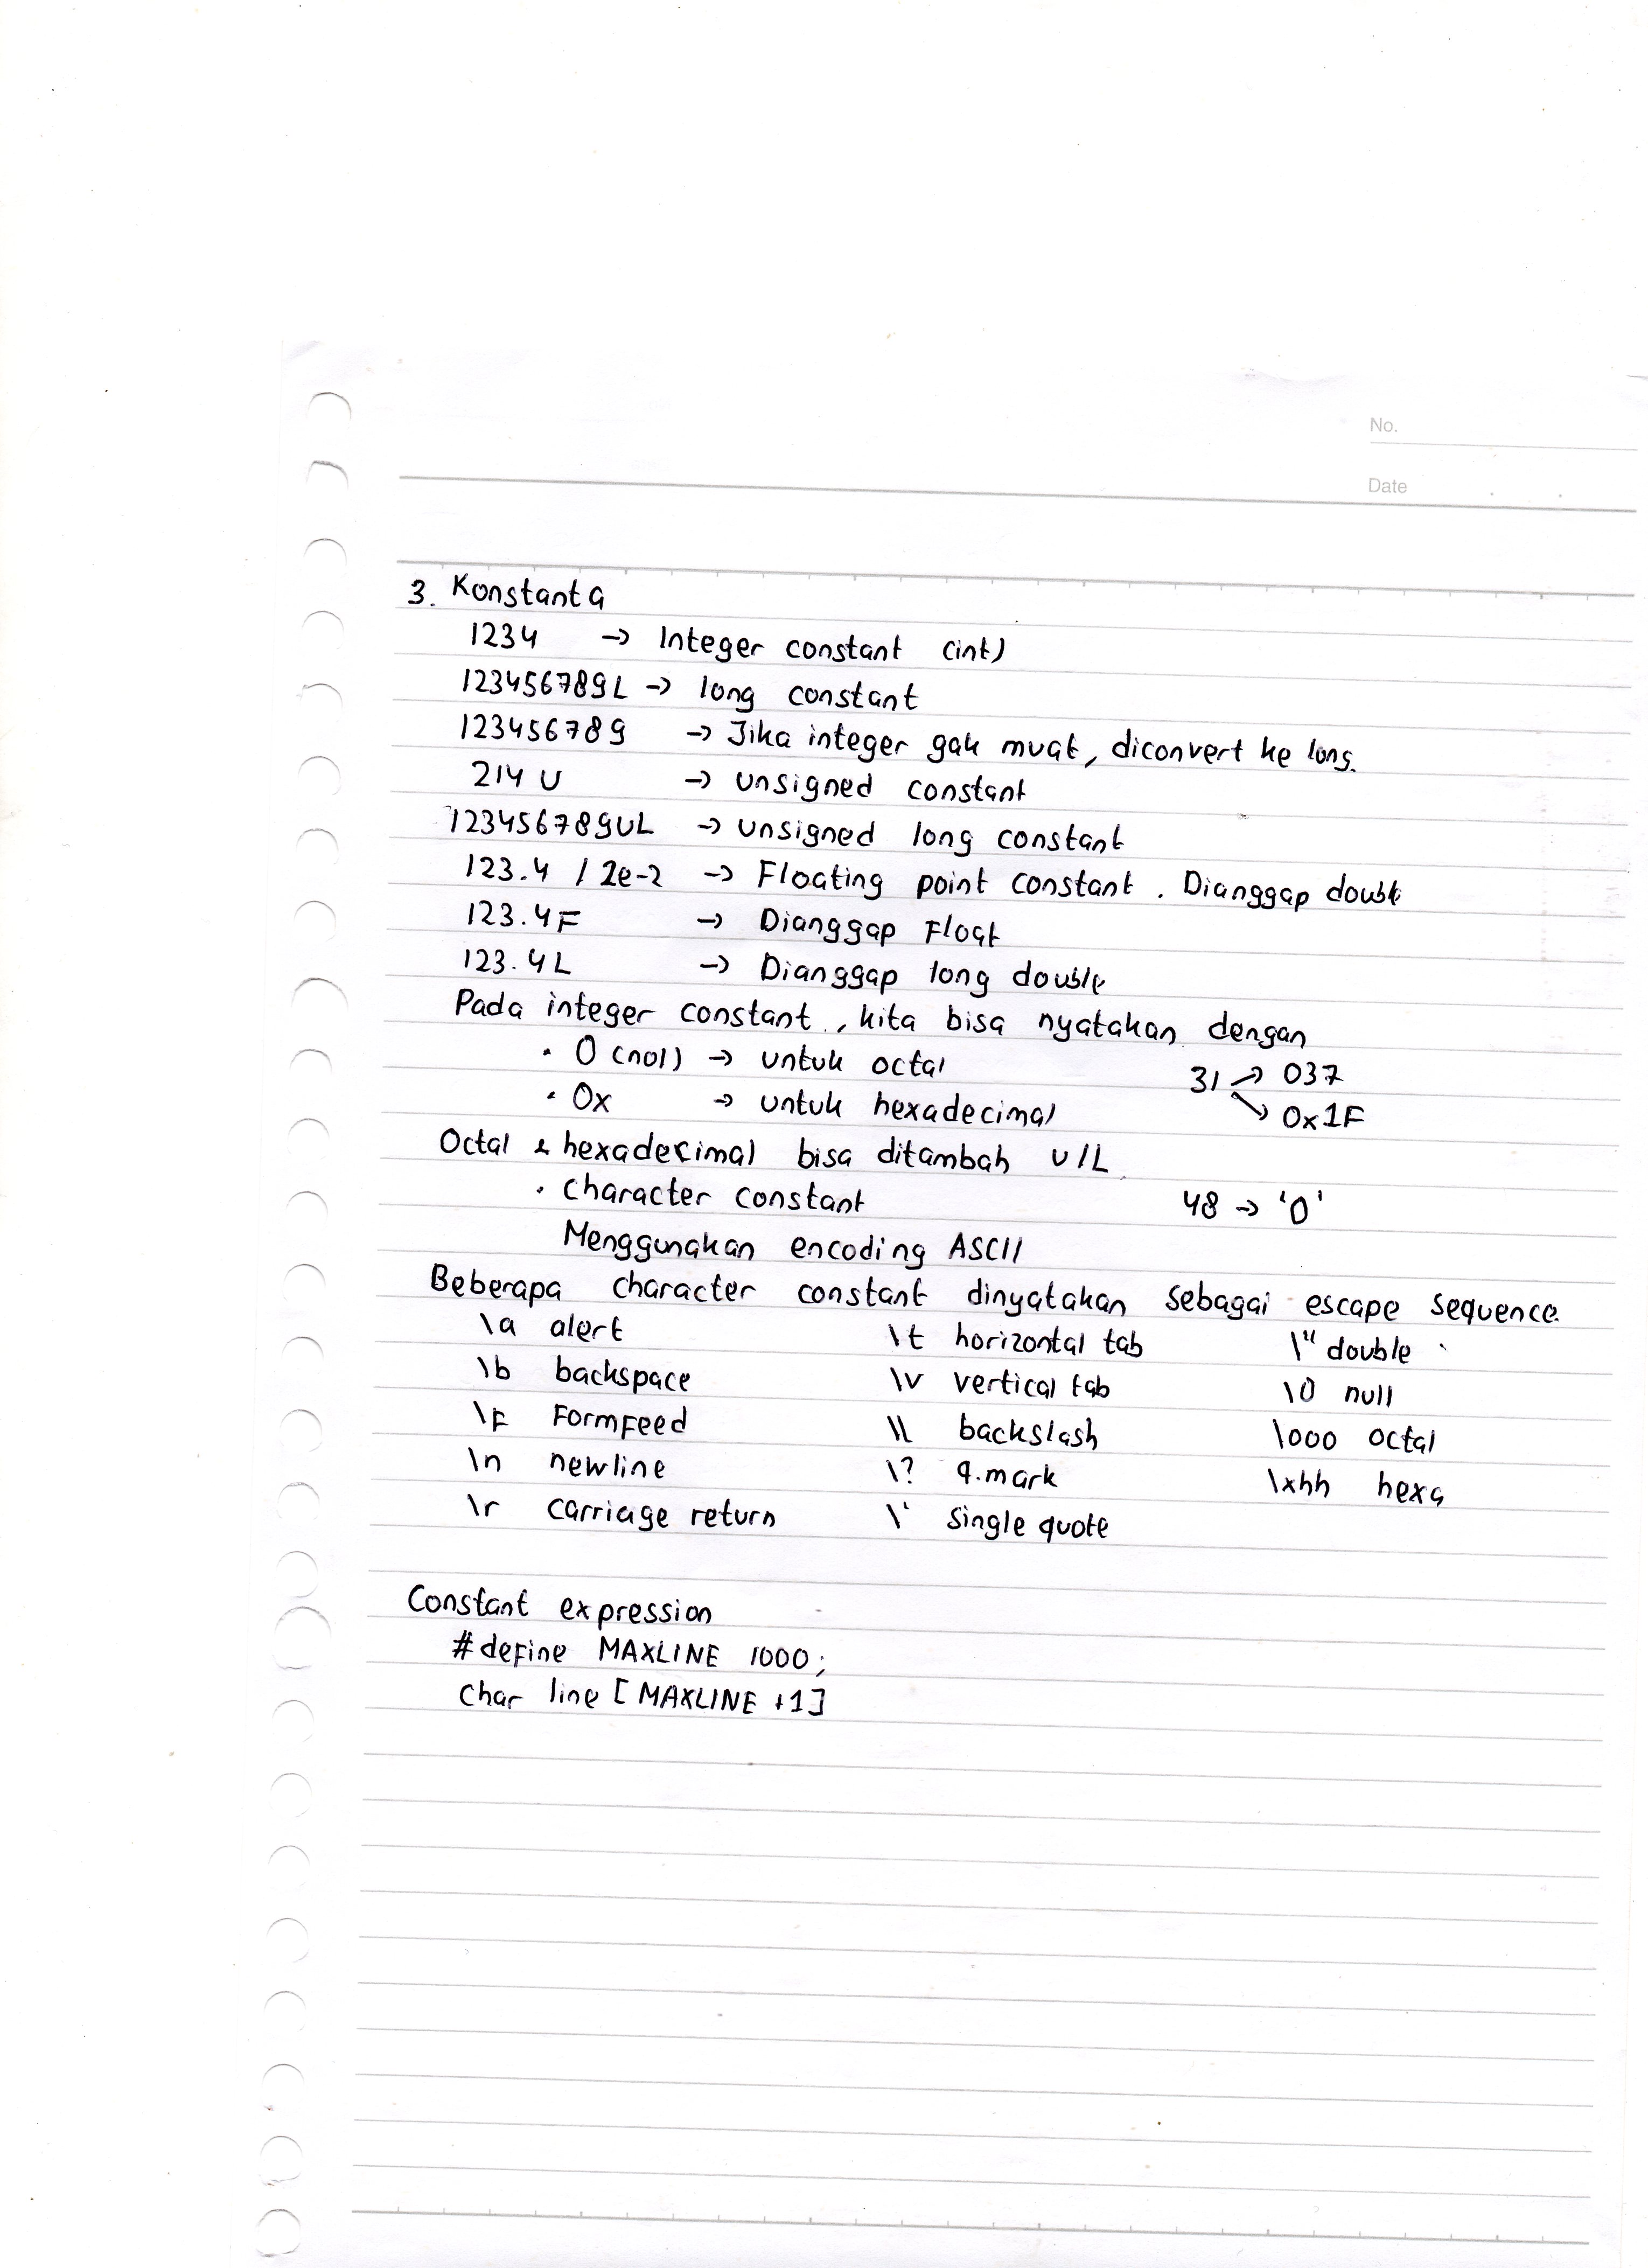 No.
Date
3. Konstanta
1234 → Integer constant (int)
123456789L → long constant
123456789 → Jika integer gak muat, diconvert ke long.
214 U → unsigned constant
123456789UL → unsigned long constant
123.4 / 2e-2 → Floating point constant. Dianggap double
123.4F → Dianggap Float
123.4L → Dianggap long double
Pada integer constant, kita bisa nyatakan dengan
• 0 (nol) → untuk octal 31 → 037
• 0x → untuk hexadecimal ↘ 0x1F
Octal & hexadecimal bisa ditambah U/L
• Character constant 48 → '0'
Menggunakan encoding ASCII
Beberapa character constant dinyatakan sebagai escape sequence.
\a alert \t horizontal tab \" double
\b backspace \v vertical tab \0 null
\F FormFeed \\ backslash \ooo octal
\n newline \? q.mark \xhh hexa
\r carriage return \' single quote
Constant expression
#define MAXLINE 1000;
Char line [MAXLINE +1]